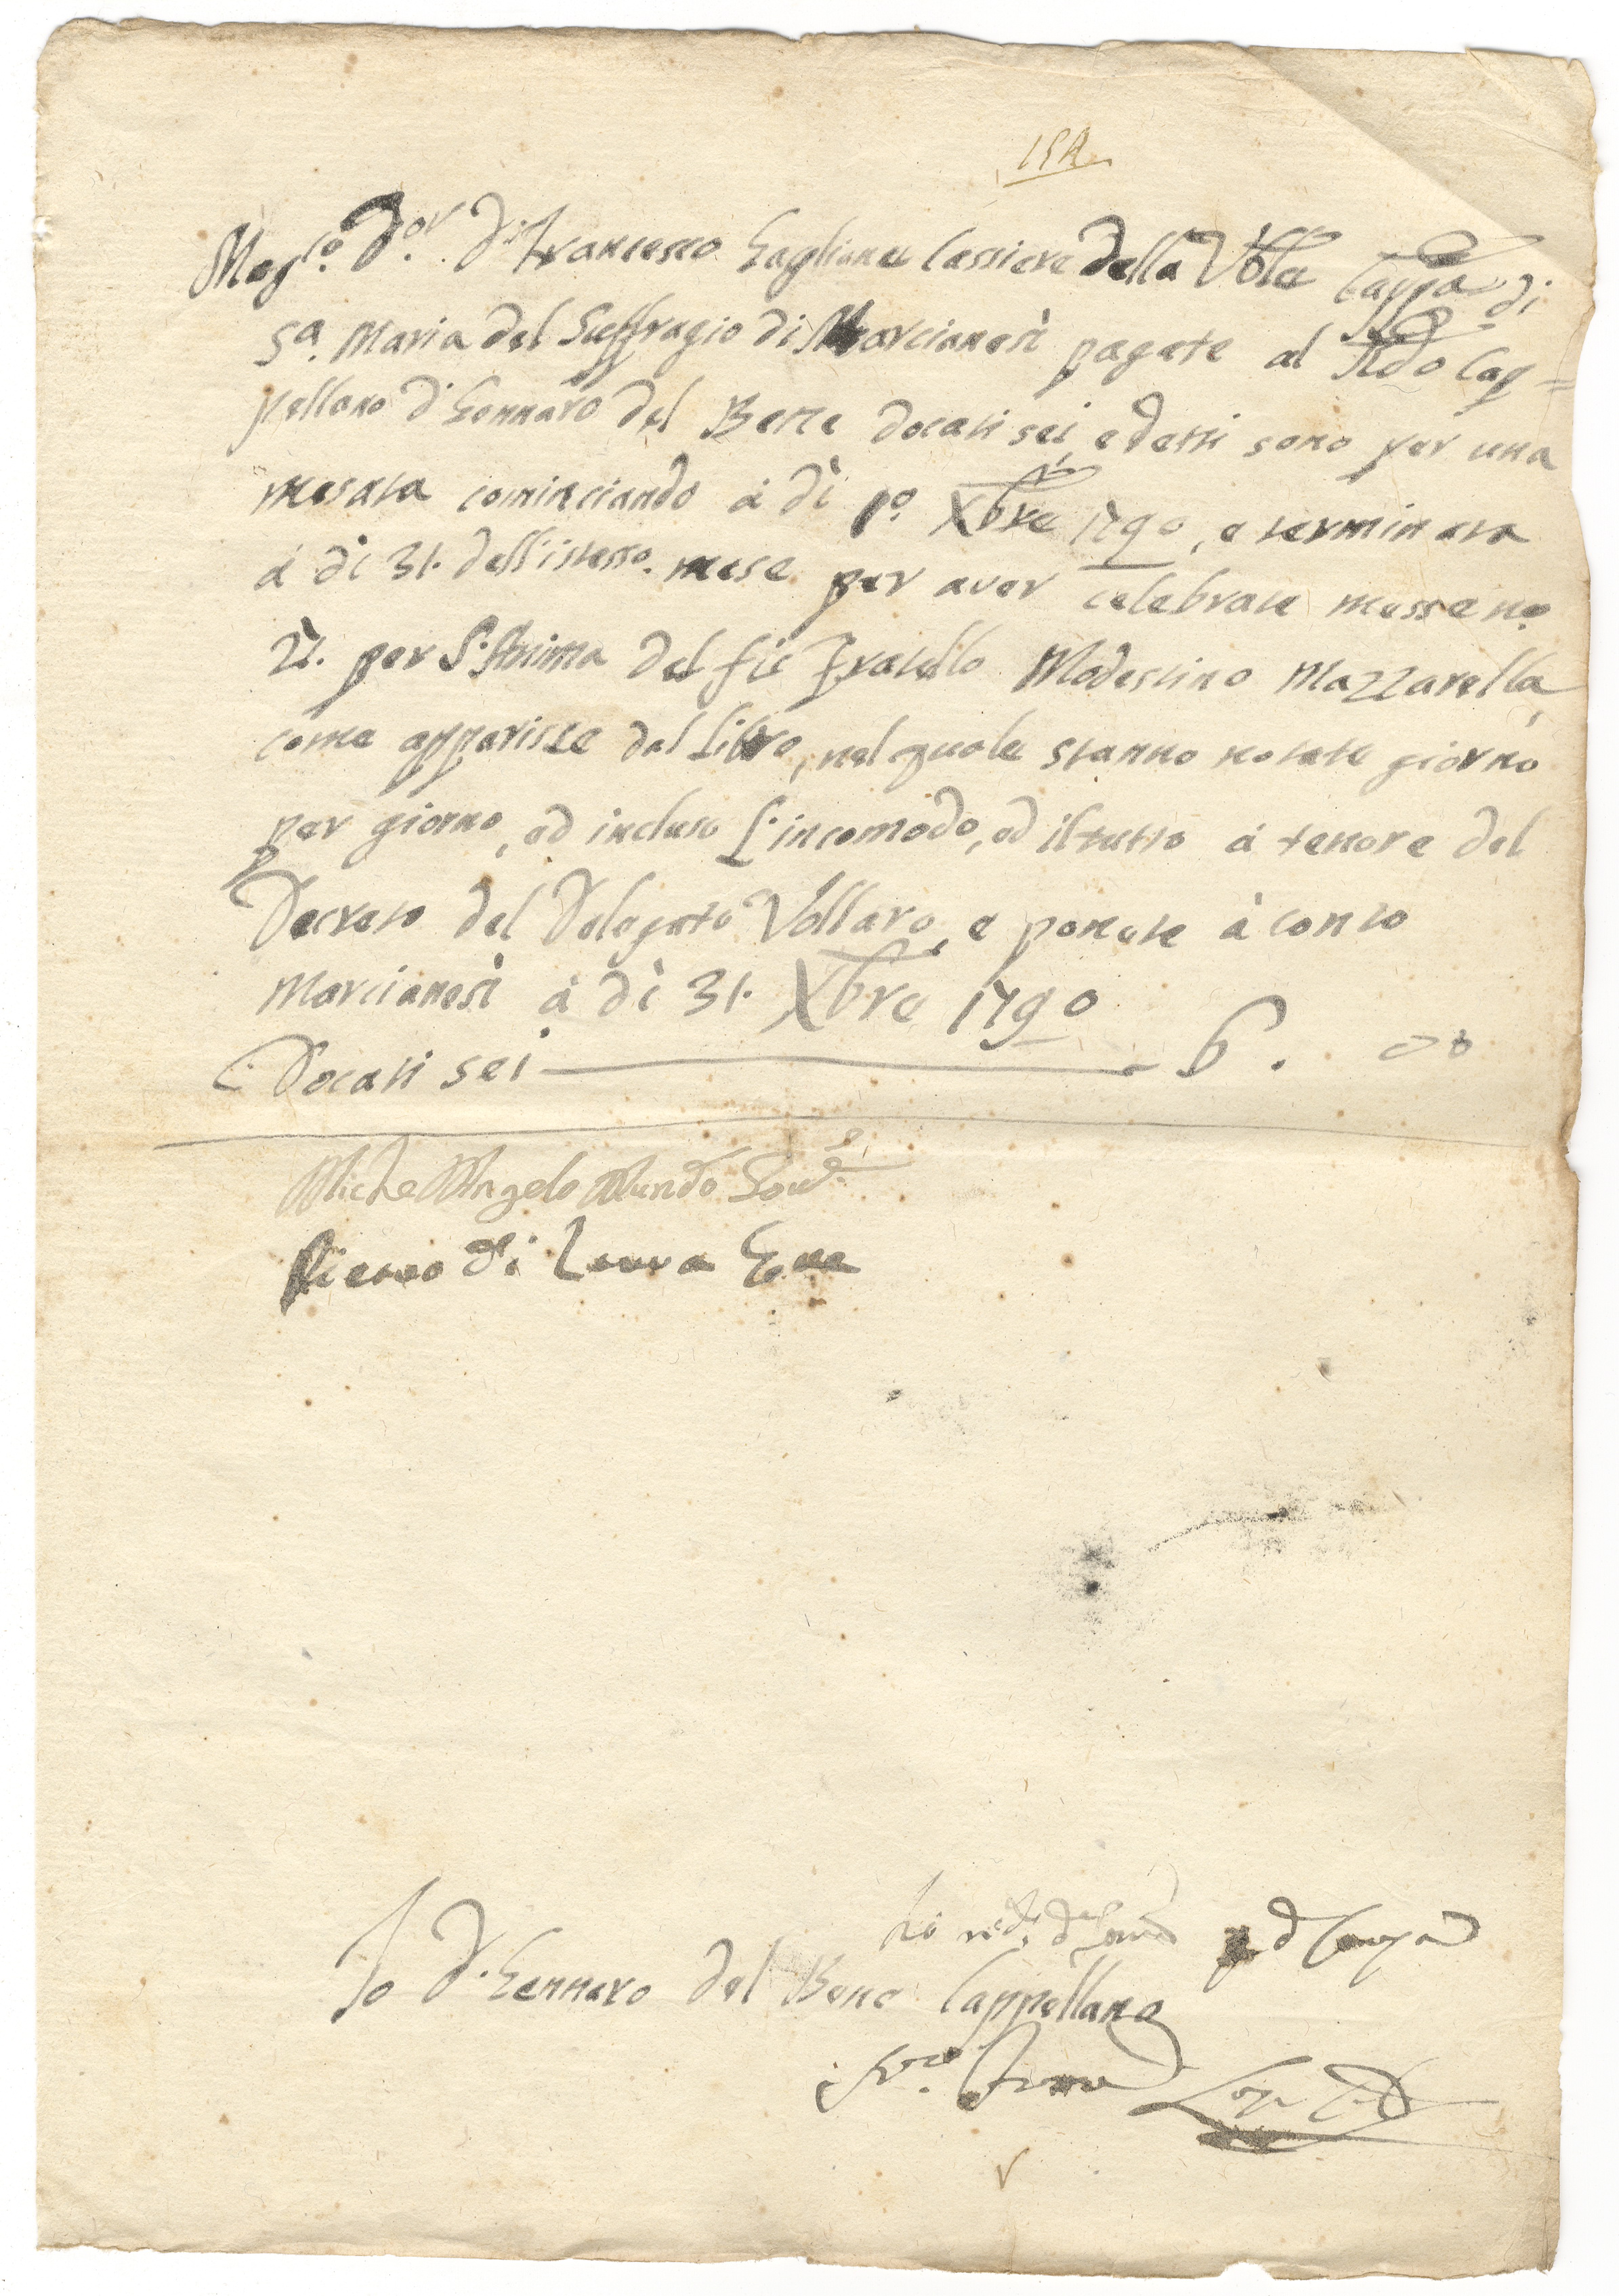 Mag.co D.or D. Francesco Gaglione Cassiere della Vble Cappa di
S.a Maria del Suffragio di Marcianesi pagate al Rdo Cap=
pellano D. Gennaro del Bene docati sei, e detti sono per una
mesata cominciando à dì p.o Xbre 1790, e terminata
à dì 31. dell'istesso mese per aver celebrate messe n.o
per l'Anima del fù Fratello Modestino Mazzarella,
come apparisce dal libro, nel quale stanno notate giorno
per giorno, ed incluso l'incomodo, ed il tutto à tenore del
Decreto del Delegato Vollaro, e ponete à conto
Marcianesi à dì 31. Xbre 1790
Docati sei 6. 00
Michel'Angelo Mundo
di
Io D. Gennaro del Bene Cappellano